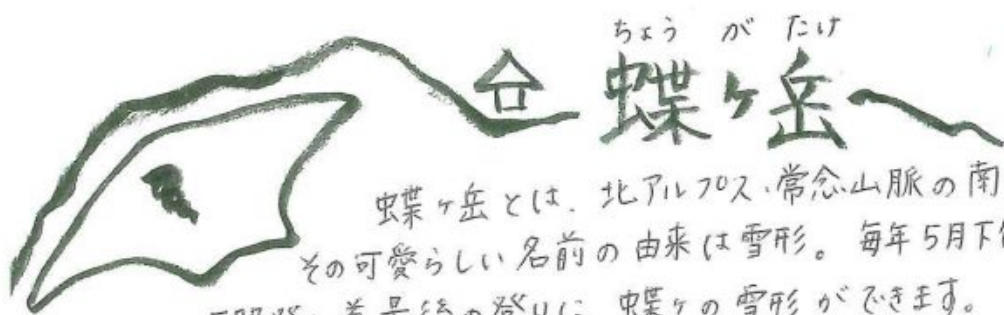 ちょうがたけ
蝶ヶ岳
蝶ヶ岳とは、北アルプス・常念山脈の南
その可愛らしい名前の由来は雪形。毎年5月下
最後の登りに、蝶ヶの雪形ができます。